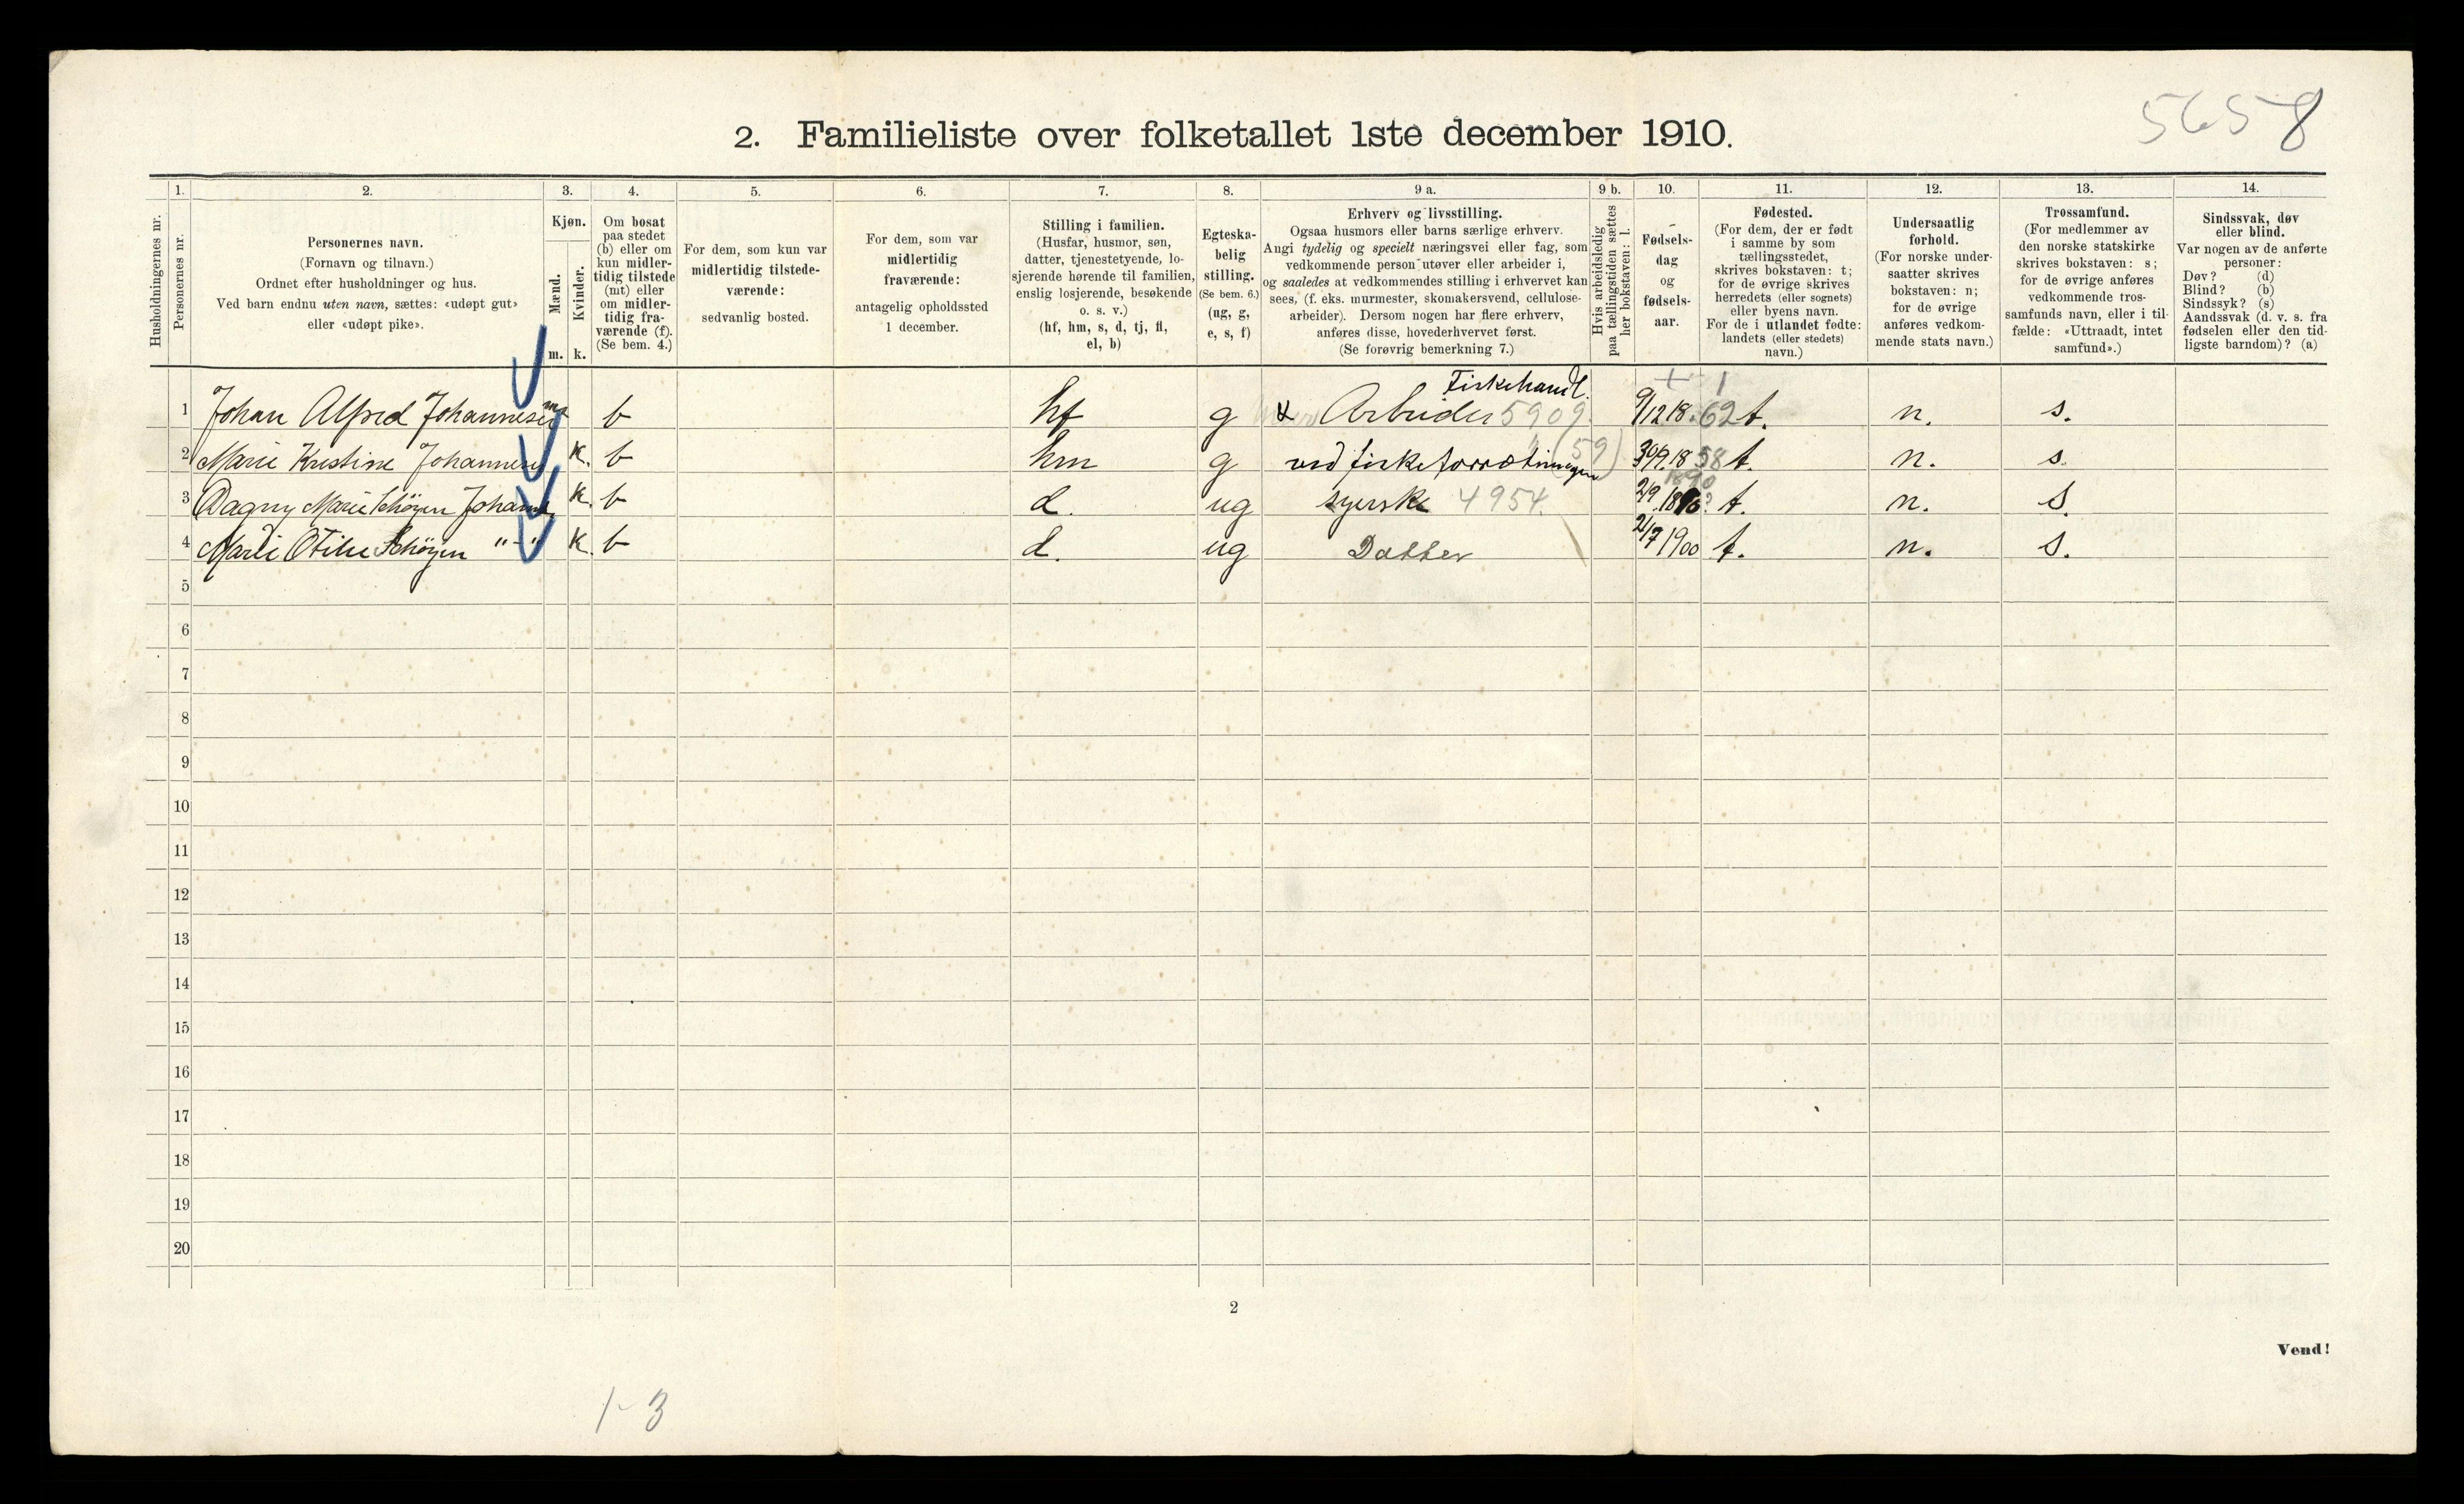 5658
2. Familieliste over folketallet 1ste december 1910.
Husholdningernes nr.
1.
Personernes nr.
2.
Personernes navn.
(Fornavn og tilnavn.)
Ordnet efter husholdninger og hus.
Ved barn endnu uten navn, sættes: «udøpt gut»
eller «udøpt pike».
3.
Kjøn.
Mænd.
Kvinder.
m. k.
4.
Om bosat
paa stedet
(b) eller om
kun midler-
tidig tilstede
(mt) eller
om midler-
tidig fra-
værende (f).
(Se bem. 4.)
5.
For dem, som kun var
midlertidig tilstede-
værende:
sedvanlig bosted.
6.
For dem, som var
midlertidig
fraværende:
antagelig opholdssted
1 december.
7.
Stilling i familien.
(Husfar, husmor, søn,
datter, tjenestetyende, lo-
sjerende hørende til familien,
enslig losjerende, besøkende
o. s. v.)
(hf, hm, s, d, tj, fl,
el, b)
8.
Egteska-
belig
stilling.
(Se bem. 6.)
(ug, g,
e, s, f)
9 a.
Erhverv og livsstilling.
Ogsaa husmors eller barns særlige erhverv.
Angi tydelig og specielt næringsvei eller fag, som
vedkommende person utøver eller arbeider i,
og saaledes at vedkommendes stilling i erhvervet kan
sees, (f. eks. murmester, skomakersvend, cellulose-
arbeider). Dersom nogen har flere erhverv,
anføres disse, hovederhvervet først.
(Se forøvrig bemerkning 7.)
9 b.
Hvis arbeidsledig
paa tællingstiden sættes
her bokstaven: l.
10.
Fødsels-
dag
og
fødsels-
aar.
11.
Fødested.
(For dem, der er født
i samme by som
tællingsstedet,
skrives bokstaven: t;
for de øvrige skrives
herredets (eller sognets)
eller byens navn.
For de i utlandet fødte:
landets (eller stedets)
navn.)
12.
Undersaatlig
forhold.
(For norske under-
saatter skrives
bokstaven: n;
for de øvrige
anføres vedkom-
mende stats navn.)
13.
Trossamfund.
(For medlemmer av
den norske statskirke
skrives bokstaven: s;
for de øvrige anføres
vedkommende tros-
samfunds navn, eller i til-
fælde: «Uttraadt, intet
samfund».)
14.
Sindssvak, døv
eller blind.
Var nogen av de anførte
personer:
Døv? (d)
Blind? (b)
Sindssyk? (s)
Aandssvak (d. v. s. fra
fødselen eller den tid-
ligste barndom)? (a)
Fiskehandl.
1 Johan Alfred Johannesen m b hf g Arbeider 5909 9/12 18.62 t. n. s.
2 Marie Kristine Johannesen k. b hm g ved fiskeforrætningen (59) 30/9.18 58 t. n. s.
1890
3 Dagny Marie Schøyen Johans k. b d. ug syerske 4954. 2/9.1890? t. n. s.
4 Marie Otilie Schøyen " - " k. b d. ug Datter 21/7 1900 t. n. s.
5
6
7
8
9
10
11
12
13
14
15
16
17
18
19
20
2
Vend!
1-3